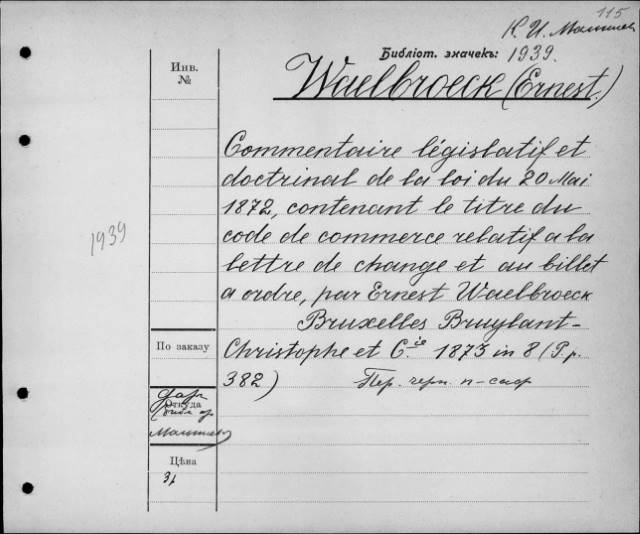 115
К. И.
Библіот. значекъ: 1939.
Waelbroeck (Ernest.)
Инв.
№
Commentaire législatif et
doctrinal de la loi du 20 Mai
1872, contenant le titre du
code de commerce relatif a la
lettre de change et au billet
a ordre, par Ernest Waelbroeck
Bruxelles Bruylant-
Christophe et C.ie 1873 in 8 (P. p.
382) Пер. черн.
1939
По заказу
Откуда
Цѣна